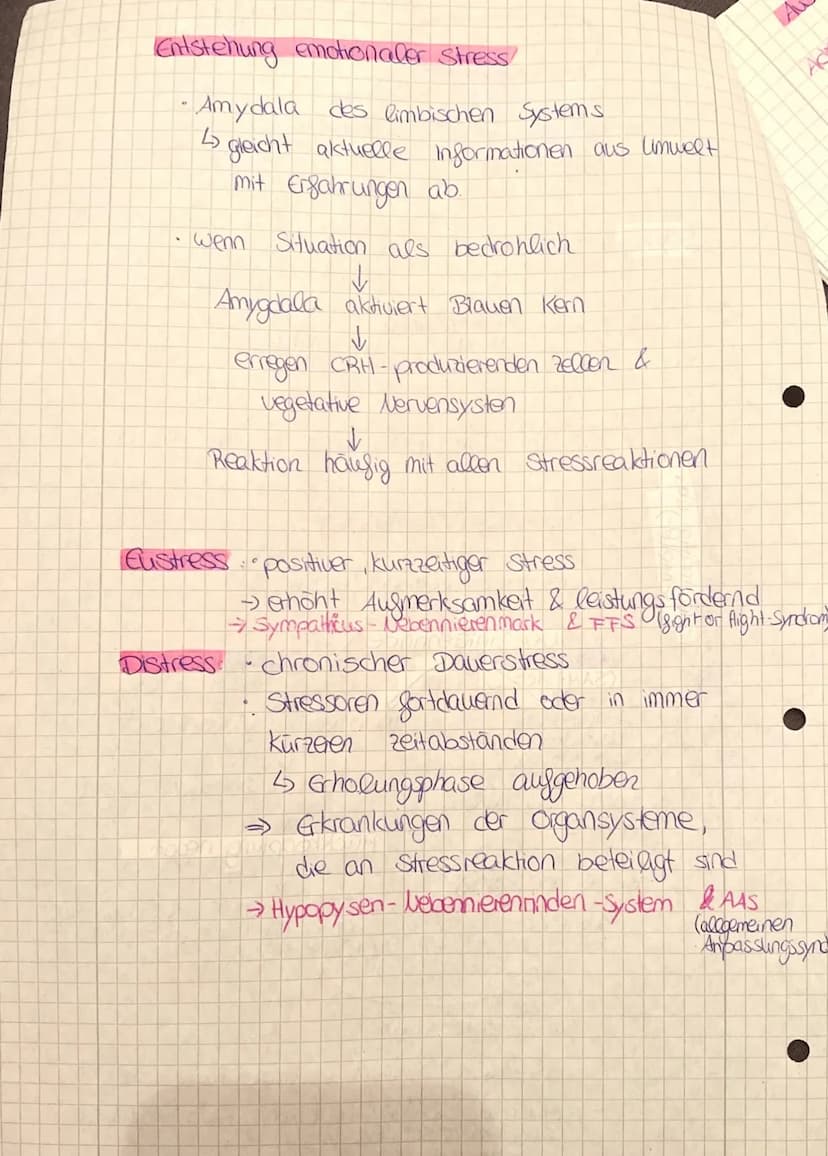 Entstehung emotionaler Stress
· Amydala des limbischen Systems
↳ gleicht aktuelle Informationen aus Umwelt
mit Erfahrungen ab.
· wenn Situation als bedrohlich
↓
Amygdala aktiviert Blauen Kern
↓
erregen CRH-produzierenden Zellen &
vegetative Nervensysten
↓
Reaktion häufig mit allen Stressreaktionen
Eustress: · positiver, kurzzeitiger Stress
→ erhöht Aufmerksamkeit & leistungsfördernd
→ Sympatikus-Nebennierenmark & FFS (fight or flight-Syndrom)
Distress: · chronischer Dauerstress
· Stressoren fortdauernd oder in immer
kürzeren Zeitabständen
↳ Erholungsphase aufgehoben
⇒ Erkrankungen der Organsysteme,
die an Stressreaktion beteiligt sind
→ Hypopysen-Nebennierenrinden-System & AAS
(allgemeinen
Anpassungssynd